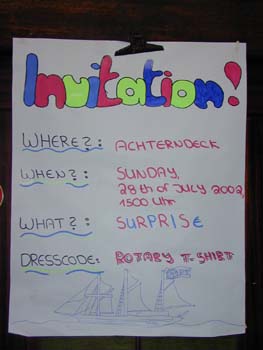 Invitation!
WHERE?: ACHTERNDECK
WHEN?: SUNDAY,
28th of JULY 2002,
1500 Uhr
WHAT?: SURPRISE
DRESSCODE: ROTARY T-SHIRT